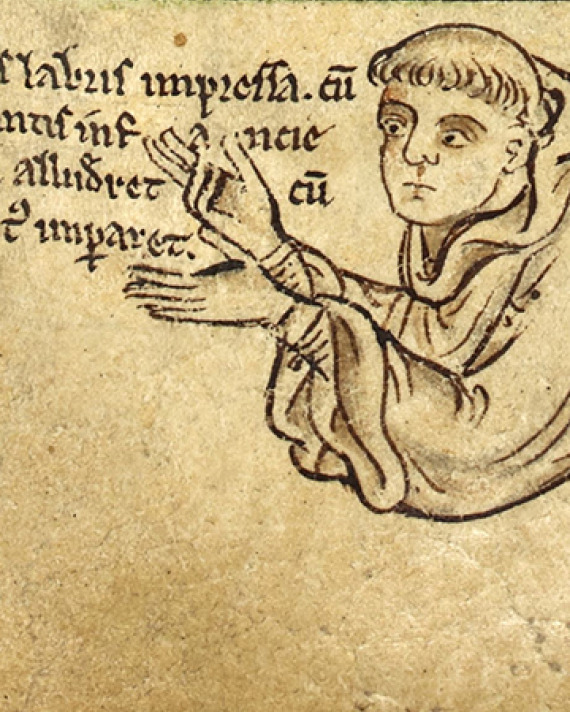 s labris impressa. cū
ntis infancie
allud̾ret cū
tꝰ imꝑaret.